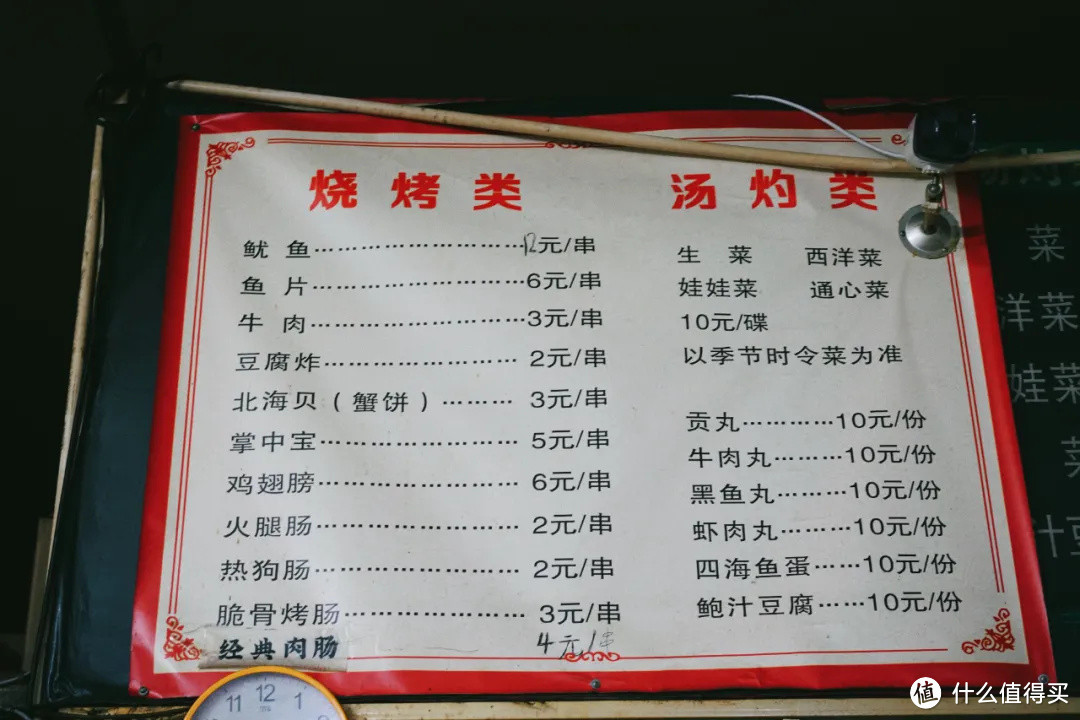 烧烤类
鱿鱼……………………12元/串
鱼片……………………6元/串
牛肉……………………3元/串
豆腐炸…………………2元/串
北海贝（蟹饼）………3元/串
掌中宝…………………5元/串
鸡翅膀…………………6元/串
火腿肠…………………2元/串
热狗肠…………………2元/串
脆骨烤肠………………3元/串
经典肉肠 4元/串
汤灼类
生菜 西洋菜
娃娃菜 通心菜
10元/碟
以季节时令菜为准
贡丸…………10元/份
牛肉丸………10元/份
黑鱼丸………10元/份
虾肉丸………10元/份
四海鱼蛋……10元/份
鲍汁豆腐……10元/份
菜
洋菜
娃菜
菜
汁豆
11 12 1
值 什么值得买